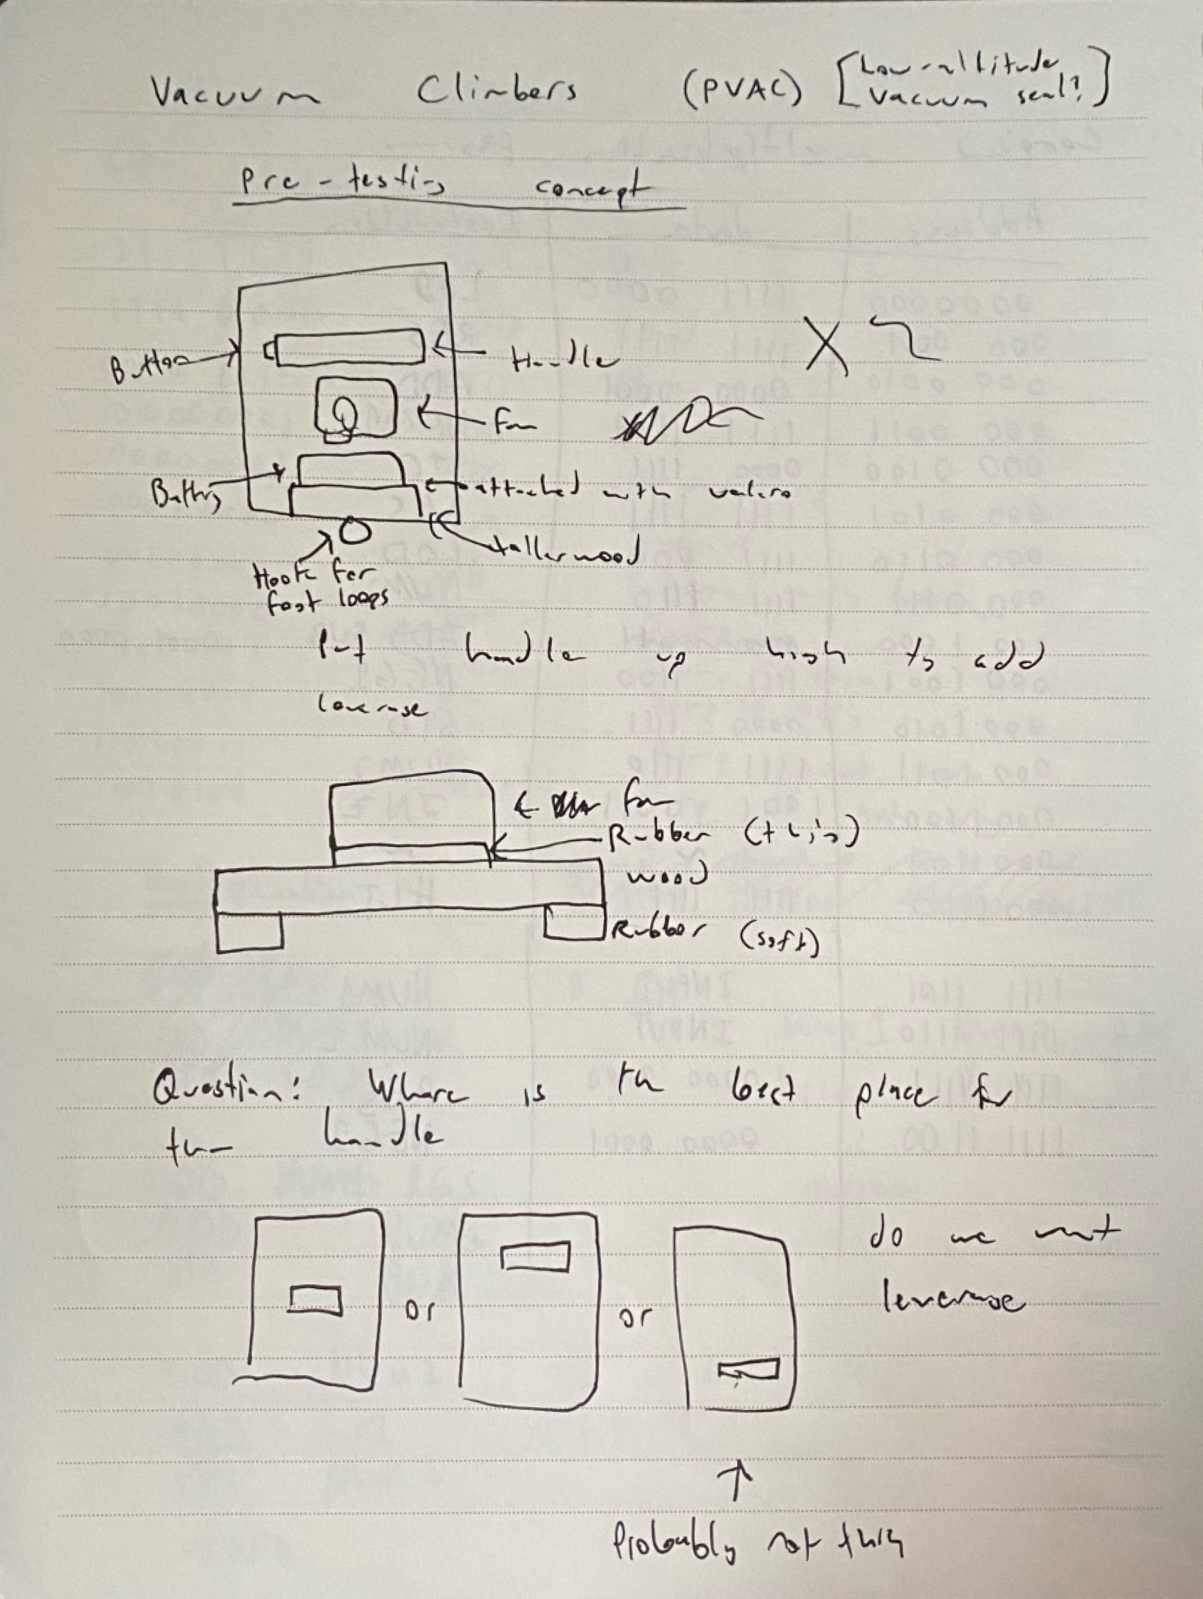 Vacuum Climbers (PVAC) [Low-altitude
vacuum seal?]
Pre-testing concept
Button
Handle
X2
Fan
Battery
attached with velcro
taller wood
Hook for
foot loops
Put handle up high to add
leverage
Fan
Rubber (thin)
wood
Rubber (soft)
Question: Where is the best place for
the handle
or
or
do we want
leverage
Probably not this